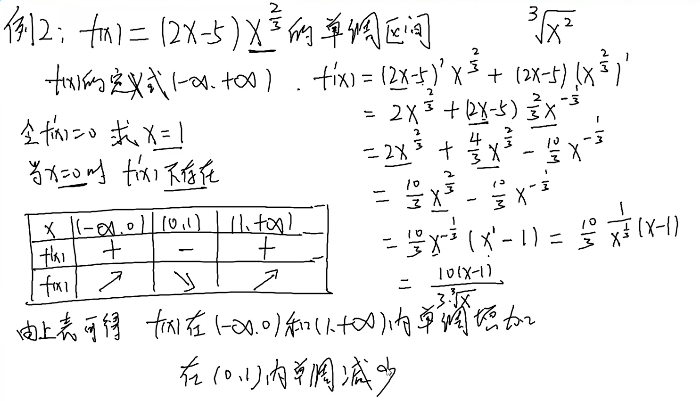 例2: f(x) = (2x-5) x^{2/3} 的单调区间
∛x²
f(x)的定义式(-∞,+∞).
f'(x) = (2x-5)' x^{2/3} + (2x-5)(x^{2/3})'
= 2x^{2/3} + (2x-5) 2/3 x^{-1/3}
= 2x^{2/3} + 4/3 x^{2/3} - 10/3 x^{-1/3}
= 10/3 x^{2/3} - 10/3 x^{-1/3}
= 10/3 x^{-1/3} (x' - 1) = 10/3 1/x^{1/3} (x-1)
= 10(x-1)/3·∛x
令f'(x)=0 求 x=1
当x=0时 f'(x)不存在
x (-∞,0) (0,1) (1,+∞)
f'(x) + - +
f(x) ↗ ↘ ↗
由上表可得 f(x)在(-∞,0)和(1,+∞)内单调增加
在(0,1)内单调减少